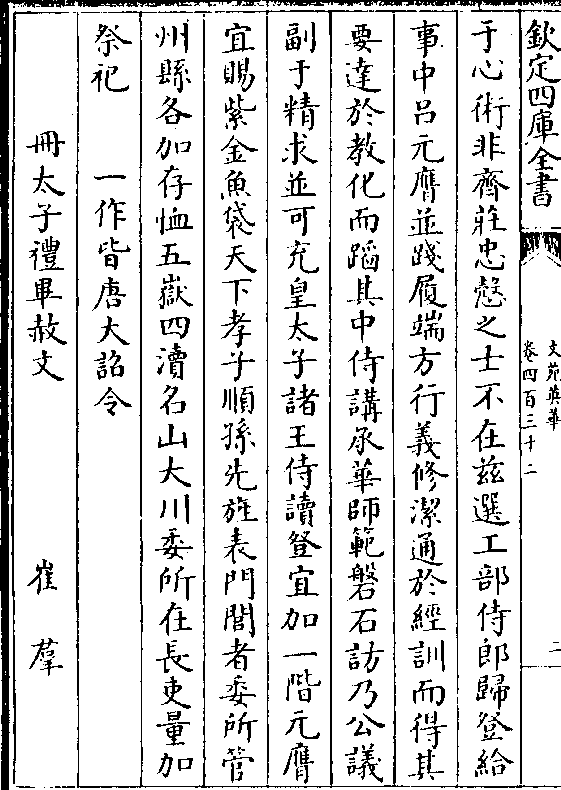 欽定四庫全書
文苑英華
卷四百三十二
二
于心術非齊莊忠慤之士不在茲選工部侍郎歸登給
事中呂元膺並踐履端方行義修潔通於經訓而得其
要達於教化而蹈其中侍講承華師範磐石訪乃公議
副于精求並可充皇太子諸王侍讀登宜加一階元膺
宜賜紫金魚袋天下孝子順孫先旌表門閭者委所管
州縣各加存恤五嶽四瀆名山大川委所在長吏量加
祭祀 一作皆唐大詔令
冊太子禮畢赦文 崔羣